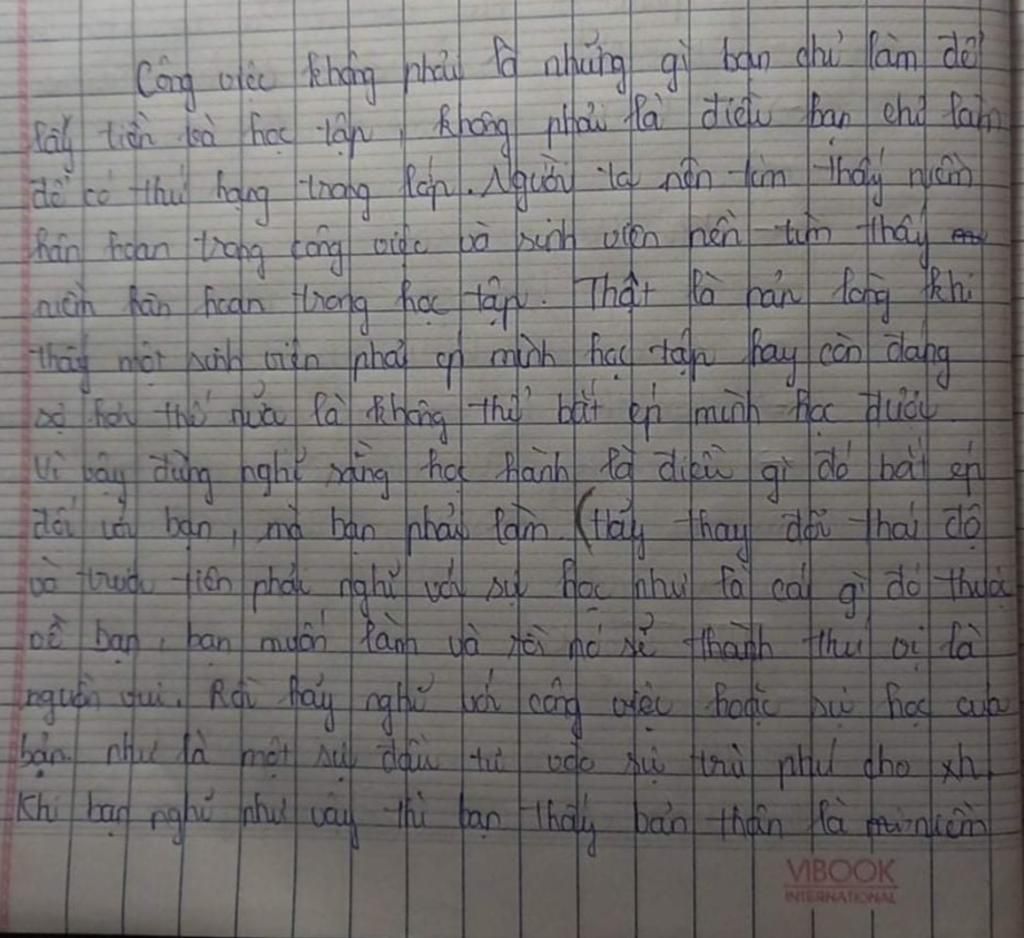 Công việc không phải là những gì bạn chỉ làm để
lấy tiền và học tập, không phải là điều bạn chỉ làm
để có thứ hạng trong lớp. Người ta nên tìm thấy niềm
hân hoan trong công việc và sinh viên nên tìm thấy
niềm hân hoan trong học tập. Thật là nản lòng khi
thấy một sinh viên phải ép mình học tập hay còn đáng
sợ hơn thế nữa là không thể bắt ép mình học được
Vì vậy đừng nghĩ rằng học hành là điều gì đó bắt ép
đối với bạn, mà bạn phải làm (Hãy thay đổi thái độ
và trước tiên phải nghĩ với sự học như là cái gì đó thuộc
về bạn, bạn muốn làm và rồi nó sẽ thành thú vị là
nguồn vui. Rồi hãy nghĩ với công việc hoặc sự học của
bạn như là một sự đầu tư vào sự trù phú cho xh
Khi bạn nghĩ như vậy thì bạn thấy bản thân là niềm
VIBOOK
INTERNATIONAL